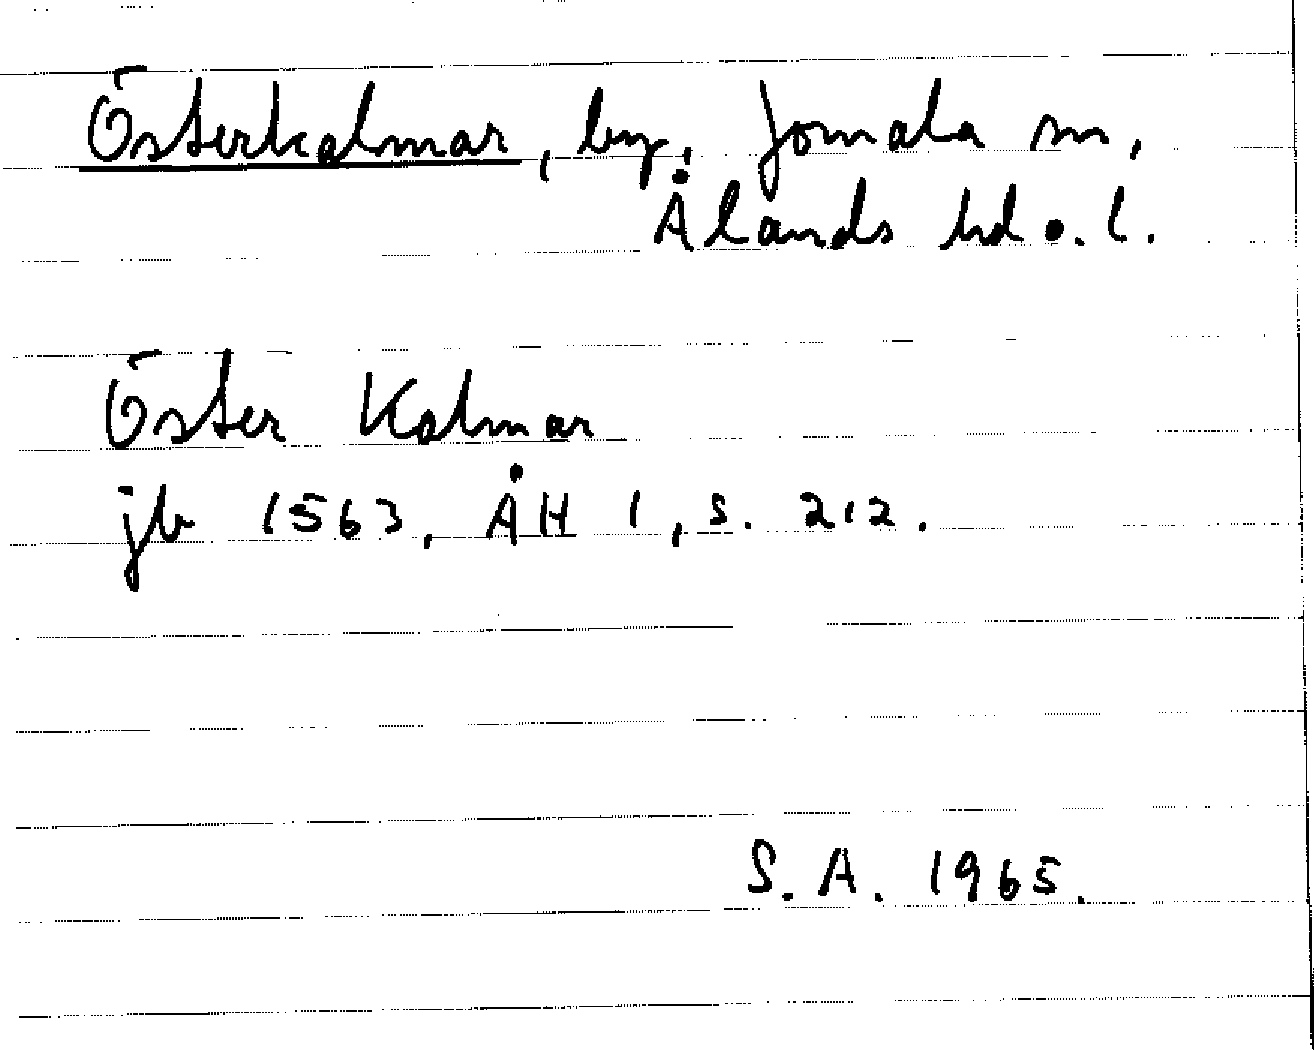 Österkalmar, by, Jomala sn,
Ålands hd o. l.
Öster Kalmar
jb 1563, ÅH 1, s. 212.
S. A. 1965.